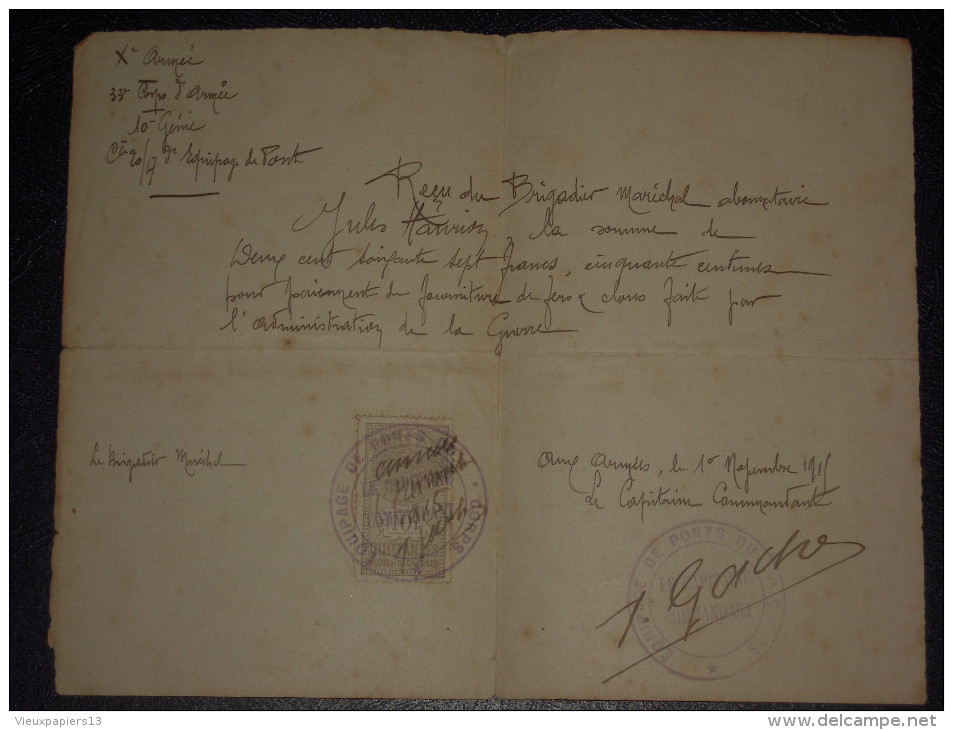 Xe Armée
33e Corps d'Armée
10e Génie
Cie 20/17 de Equipage de Pont
Reçu du Brigadier Maréchal abonnataire
Jules, la somme de
Deux cent soixante sept francs, cinquante centimes
pour paiement de fourniture de fers & clous fait par
l'administration de la Guerre
Le Brigadier Maréchal
EQUIPAGE DE PONTS
CORPS
QUITTANCES
Aux Armées, le 1er Novembre 1915
Le Capitaine Commandant
EQUIPAGE DE PONTS DU
LE CAPITAINE
COMMANDANT
Gaches
Vieuxpapiers13
www.delcampe.net